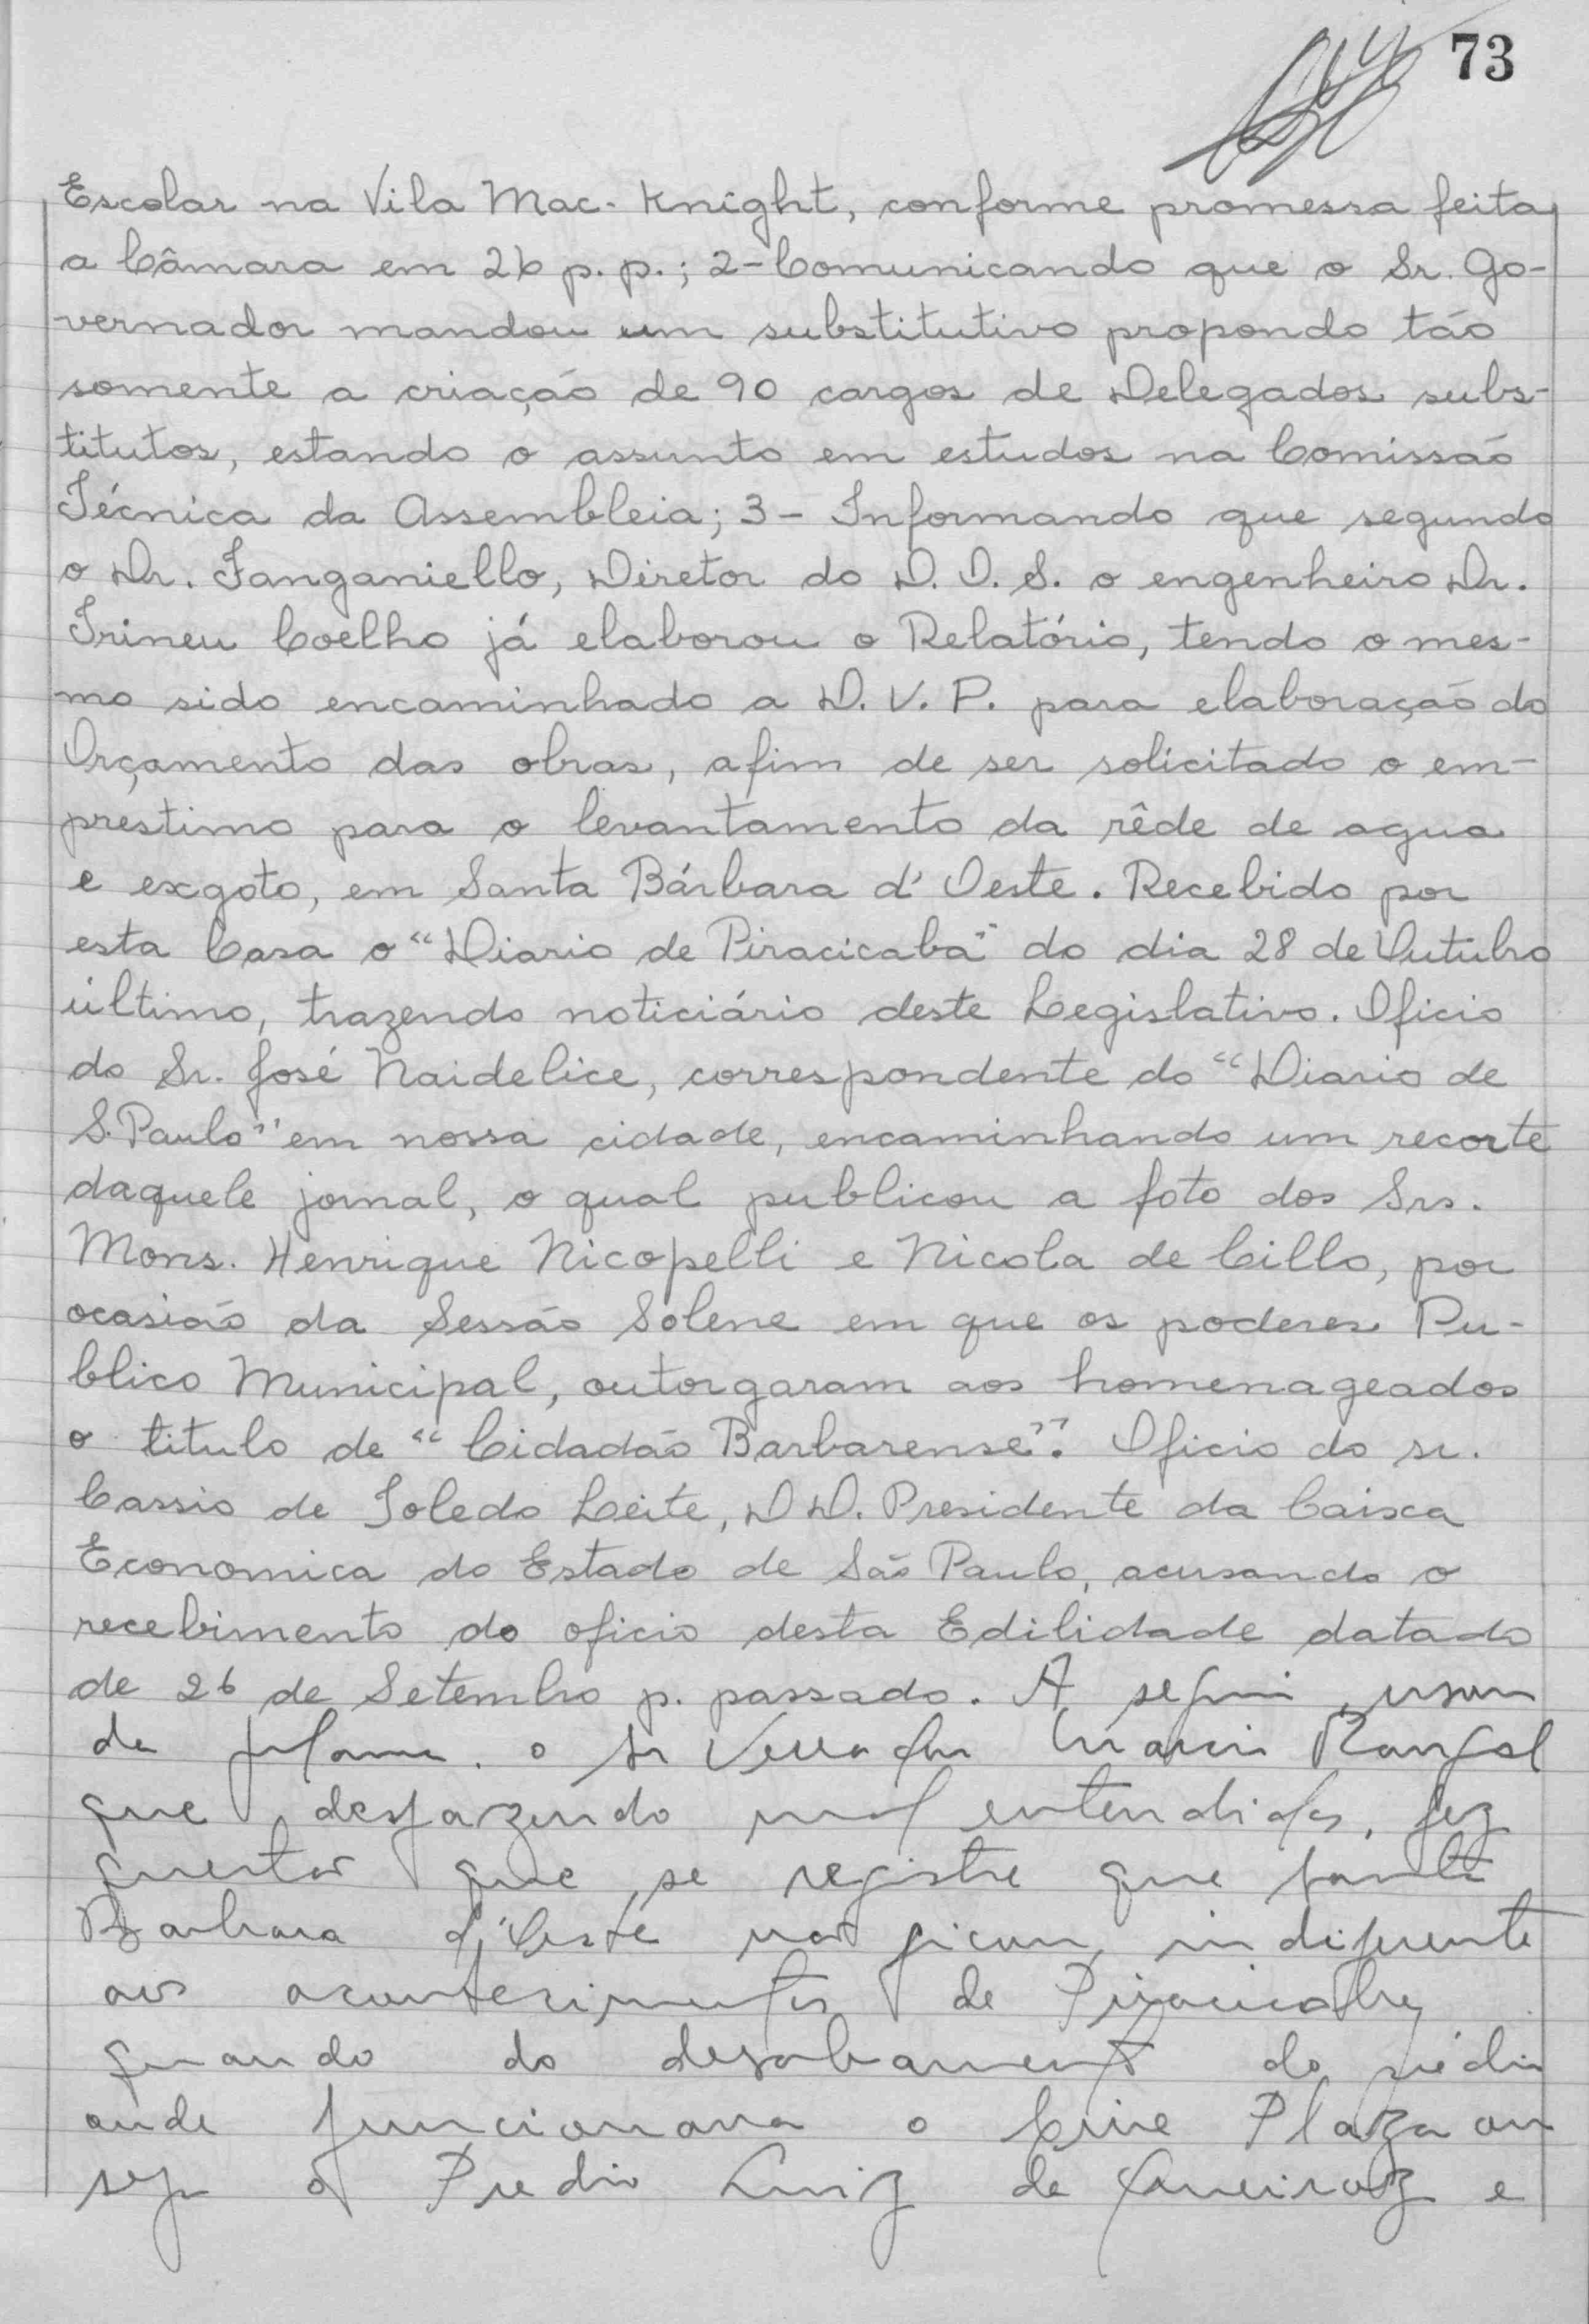 73
Escolar na Vila Mac-Knight, conforme promessa feita
a Câmara em 26 p.p.; 2-Comunicando que o Sr. Go-
vernador mandou um substitutivo propondo tão
somente a criação de 90 cargos de Delegados subs-
titutos, estando o assunto em estudos na Comissão
Técnica da Assembleia; 3- Informando que segundo
o Dr. Fanganiello, Diretor do D. O. S. o engenheiro Dr.
Irineu Coelho já elaborou o Relatório, tendo o mes-
mo sido encaminhado a D. V. P. para elaboração do
Orçamento das obras, afim de ser solicitado o em-
prestimo para o levantamento da rêde de agua
e exgoto, em Santa Bárbara d'Oeste. Recebido por
esta Casa o "Diario de Piracicaba" do dia 28 de Outubro
último, trazendo noticiário deste Legislativo. Oficio
do Sr. José Naidelice, correspondente do "Diario de
S. Paulo" em nossa cidade, encaminhando um recorte
daquele jornal, o qual publicou a foto dos Srs.
Mons. Henrique Nicopelli e Nicola de Cillo, por
ocasião da Sessão Solene em que os poderes Pu-
blico Municipal, outorgaram aos homenageados
o titulo de "Cidadão Barbarense". Oficio do sr.
Cassio de Toledo Leite, D D. Presidente da Caixa
Economica do Estado de São Paulo, acusando o
recebimento do oficio desta Edilidade datado
de 26 de Setembro p. passado. A seguir, usou
da palavra o Sr Vereador Rangel
que desfazendo mal entendidos, fez
questão que se registre que Santa
Barbara d'Oeste não ficou indiferente
aos acontecimentos de Piracicaba
quando do desabamento do prédio
onde funcionava o Cine Plaza ou
seja o Predio Luiz de Queiroz e